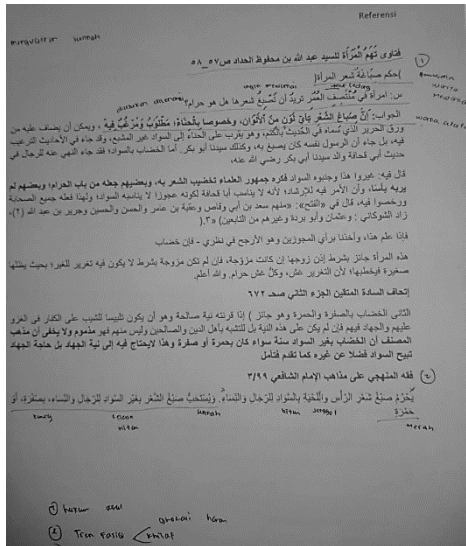 Referensi
فتاوى تهم المرأة للسيد عبد الله بن محفوظ الحداد ص ٥٧_٥٨
(حكم صباغة شعر المرأة)
س: امرأة في منتصف العمر تريد أن تصبغ شعرها هل هو حرام؟
الجواب: إن صباغ الشعر بأي لون من الألوان، وخصوصا بالحناء، مطلوب ومرغب فيه، ويمكن أن يضاف عليه من
ورق الحرير الذي نسماه في الحديث بالكتم، وهو يقرب على الحناء إلى السواد غير المشبع، وقد جاء في الأحاديث الترغيب
فيه، بل جاء أن الرسول نفسه كان يصبغ به، وكذلك سيدنا أبو بكر. أما الخضاب بالسواد؛ فقد جاء النهي عنه للرجال في
حديث أبي قحافة والد سيدنا أبي بكر رضي الله عنه،
قال فيه: غيروا هذا وجنبوه السواد فكره جمهور العلماء تخضيب الشعر به، وبعضهم جعله من باب الحرام؛ وبعضهم لم
يره بأسا، وأن الأمر فيه للإرشاد؛ لأنه لا يناسب أبا قحافة لكونه عجوزا لا يناسبه السواد؛ ولهذا فعله جميع الصحابة
ورخصوا فيه، قال في «الفتح»: «منهم سعد بن أبي وقاص وعقبة بن عامر والحسن والحسين وجرير بن عبد الله (٢)،
زاد الشوكاني : وعثمان وأبو بردة وغيرهم من التابعين» (٣.
فإذا علم هذا، وأخذنا برأي المجوزين وهو الأرجح في نظري - فإن خضاب
هذه المرأة جائز بشرط إذن زوجها إن كانت مزوجة، فإن لم تكن مزوجة بشرط لا يكون فيه تغرير للغير؛ بحيث يظنها
صغيرة فيخطبها؛ لأن التغرير غش، وكل غش حرام. والله أعلم.
إتحاف السادة المتقين الجزء الثاني صحـ ٦٧٢
الثاني الخضاب بالصفرة والحمرة وهو جائز ) إذا قرنته نية صالحة وهو أن يكون تلبيسا للشيب على الكفار في الغزو
عليهم والجهاد فيهم فإن لم يكن على هذه النية بل للتشبه بأهل الدين والصالحين وليس منهم فهو مذموم ولا يخفى أن مذهب
المصنف أن الخضاب بغير السواد سنة سواء كان بحمرة أو صفرة وهذا لا يحتاج فيه إلى نية الجهاد بل حاجة الجهاد
تبيح السواد فضلا عن غيره كما تقدم فتأمل
فقه المنهجي على مذاهب الإمام الشافعي ٣/٩٩
يحرم صبغ شعر الرأس واللحية بالسواد للرجال والنساء. ويستحب صبغ الشعر بغير السواد للرجال والنساء، بصفرة، أو
حمرة
merah
hitam
① hukum asal